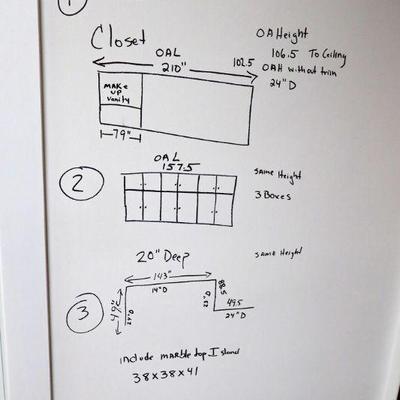 1
Closet
OAL
210"
102.5
OAHeight
106.5 To Ceileng
OAH without trim
24" D
MAKe
up
Vanity
79"
2
OAL
157.5
Same Height
3 Boxes
20" Deep
Same Height
3
143"
14" D
49"
88.5
49.5
24" D
include MARble top Island
38x38x41